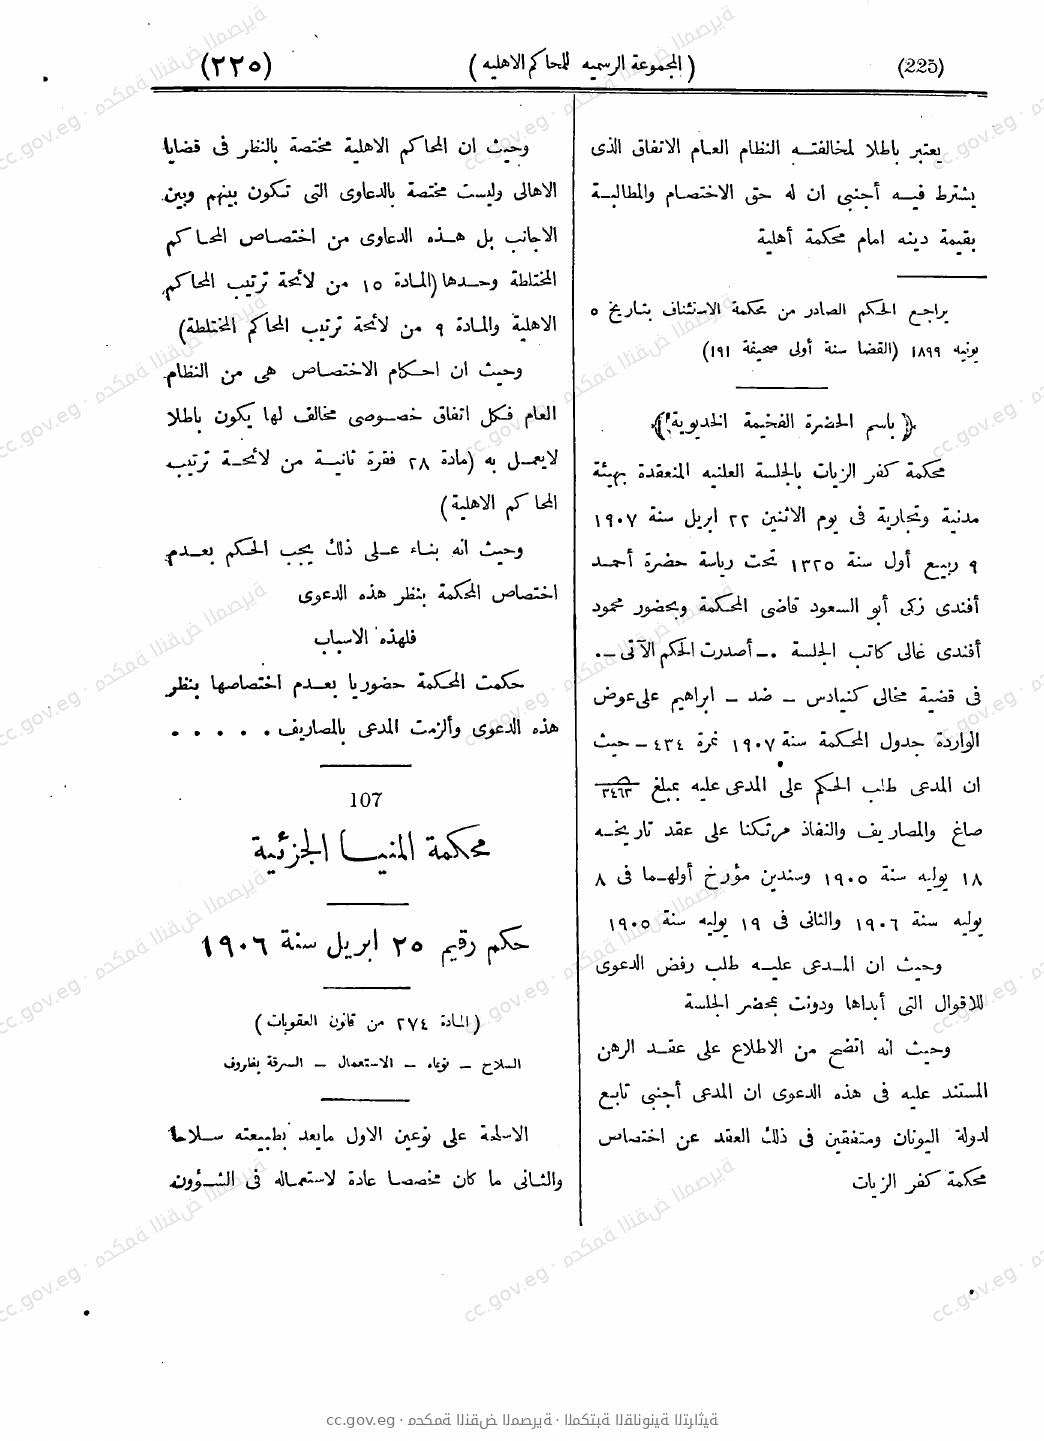 (225) (المجموعة الرسميه للمحاكم الاهليه) (٢٢٥)
يعتبر باطلا لمخالفته النظام العام الاتفاق الذى
يشترط فيه أجنبى ان له حق الاختصام والمطالبة
بقيمة دينه امام محكمة أهلية
يراجع الحكم الصادر من محكمة الاستئناف بتاريخ ٥
يونيه ١٨٩٩ (القضا سنة أولى صحيفة ١٩١)
﴿باسم الحضرة الفخيمة الخديوية﴾
محكمة كفر الزيات بالجلسة العلنيه المنعقدة بهيئة
مدنية وتجارية فى يوم الاثنين ٢٢ ابريل سنة ١٩٠٧
٩ ربيع أول سنة ١٣٢٥ تحت رياسة حضرة أحمد
أفندى زكى أبو السعود قاضى المحكمة وبحضور محمود
أفندى غالى كاتب الجلسة .ـ أصدرت الحكم الآتى ـ.
فى قضية مخالى كنيادس ـ ضد ـ ابراهيم على عوض
الواردة جدول المحكمة سنة ١٩٠٧ نمرة ٤٣٤ ـ حيث
ان المدعى طلب الحكم على المدعى عليه بمبلغ ٣٤٦٣
صاغ والمصاريف والنفاذ مرتكنا على عقد تاريخه
١٨ يوليه سنة ١٩٠٥ وسندين مؤرخ أولهما فى ٨
يوليه سنة ١٩٠٦ والثانى فى ١٩ يوليه سنة ١٩٠٥
وحيث ان المدعى عليه طلب رفض الدعوى
للاقوال التى أبداها ودونت بمحضر الجلسة
وحيث انه اتضح من الاطلاع على عقد الرهن
المستند عليه فى هذه الدعوى ان المدعى أجنبى تابع
لدولة اليونان ومتفقين فى ذلك العقد عن اختصاص
محكمة كفر الزيات
وحيث ان المحاكم الاهلية مختصة بالنظر فى قضايا
الاهالى وليست مختصة بالدعاوى التى تكون بينهم وبين
الاجانب بل هذه الدعاوى من اختصاص المحاكم
المختلطة وحدها (المادة ١٥ من لائحة ترتيب المحاكم
الاهلية والمادة ٩ من لائحة ترتيب المحاكم المختلطة)
وحيث ان احكام الاختصاص هى من النظام
العام فكل اتفاق خصوصى مخالف لها يكون باطلا
لايعمل به (مادة ٢٨ فقرة ثانية من لائحة ترتيب
المحاكم الاهلية)
وحيث انه بناء على ذلك يجب الحكم بعدم
اختصاص المحكمة بنظر هذه الدعوى
فلهذه الاسباب
حكمت المحكمة حضوريا بعدم اختصاصها بنظر
هذه الدعوى وألزمت المدعى بالمصاريف . . . . .
107
محكمة المنيا الجزئية
حكم رقيم ٢٥ ابريل سنة ١٩٠٦
(المادة ٢٧٤ من قانون العقوبات)
السلاح ـ نوعاه ـ الاستعمال ـ السرقة بظروف
الاسلحة على نوعين الاول مايعد بطبيعته سلاحا
والثانى ما كان مخصصا عادة لاستعماله فى الشؤون
cc.gov.eg · محكمة النقض المصرية · المكتبة القانونية التراثية